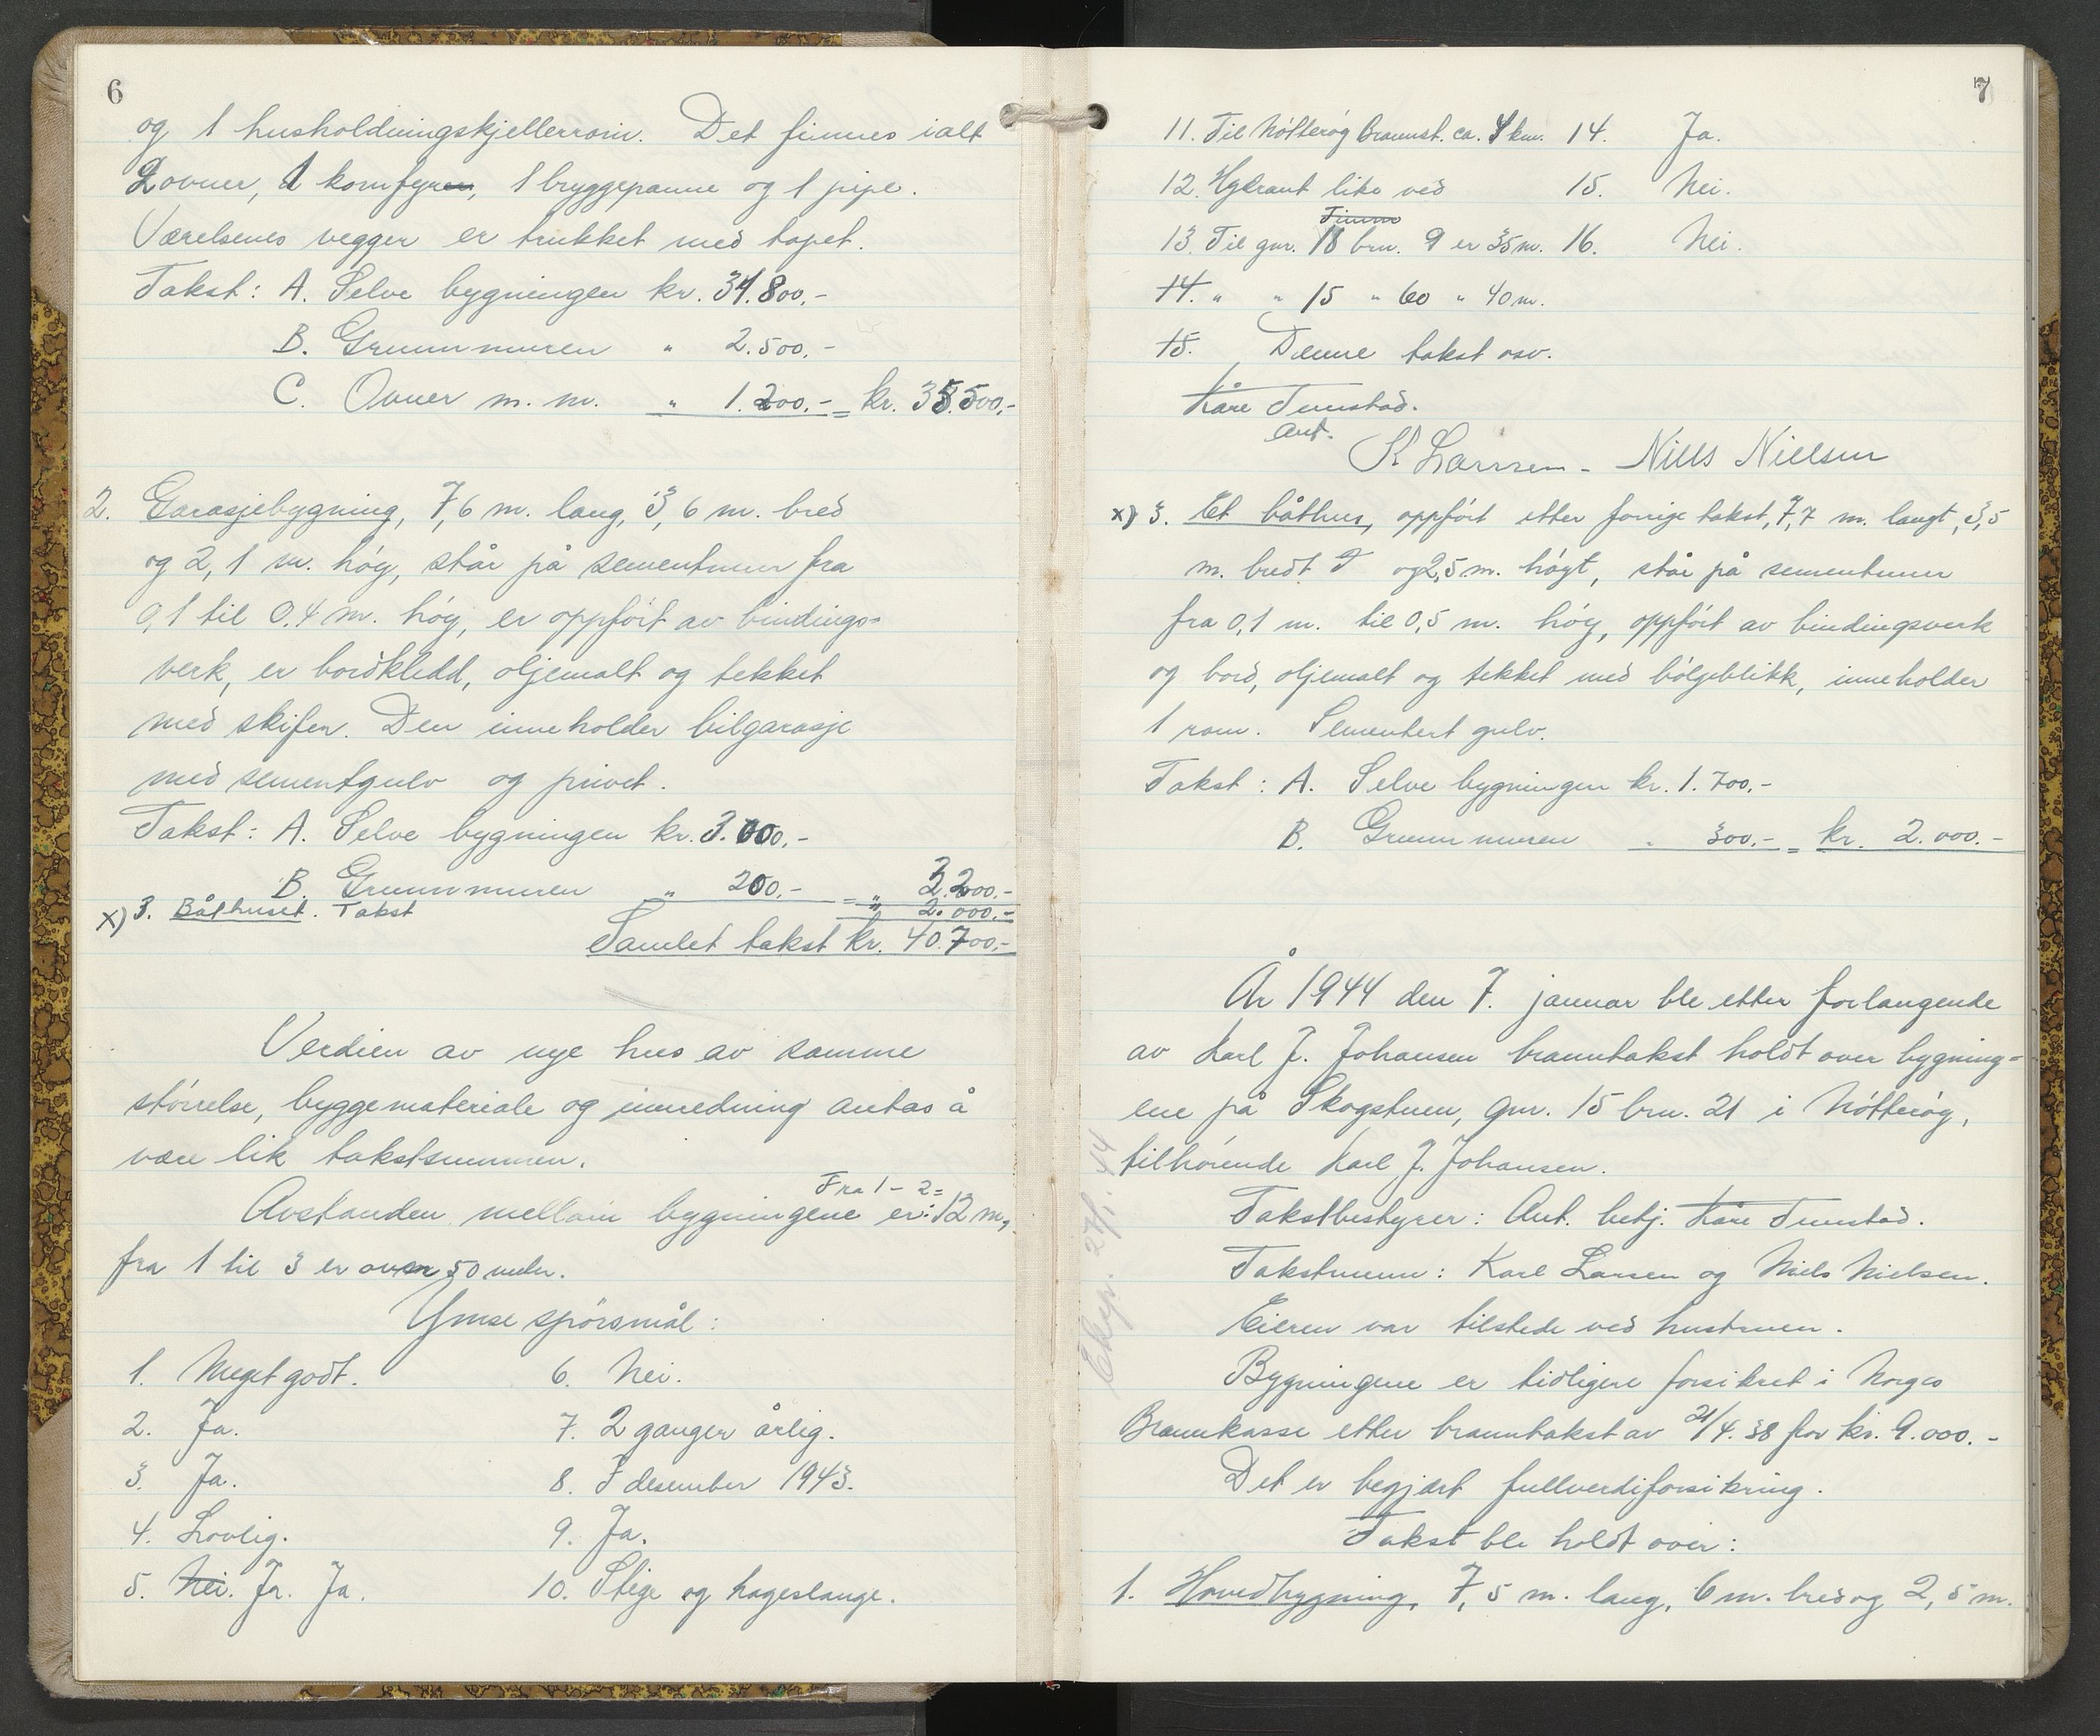 6
og 1 husholdningskjellerrom. Det finnes ialt
2 ovner, 1 komfyr, 1 bryggepanne og 1 pipe.
Værelsenes vegger er trukket med tapet.
Takst: A. Selve bygningen kr. 31.800,-
B. Grunnmuren " 2.500,-
C. Ovner m. m. " 1.200,- = kr. 35.500,-
2. Garasjebygning, 7,6 m. lang, 3,6 m. bred
og 2,1 m. høg, står på sementmur fra
0,1 til 0,4 m. høg, er oppført av bindings=
verk, er bordkledd, oljemalt og tekket
med skifer. Den inneholder bilgarasje
med sementgulv og privet.
Takst: A. Selve bygningen kr. 3.000,-
B. Grunnmuren " 200,- = " 3.200,-
x) 3. Båthuset. Takst " 2.000,-
Samlet takst kr. 40.700,-
Verdien av nye hus av samme
størrelse, byggemateriale og innredning antas å
være lik takstsummen.
Avstanden mellom bygningene er: Fra 1 - 2 = 12 m,
fra 1 til 3 er over 50 meter.
Ymse spørsmål:
1. Meget godt. 6. Nei.
2. Ja. 7. 2 ganger årlig.
3. Ja. 8. I desember 1943.
4. Lovlig. 9. Ja.
5. Nei. Ja. Ja. 10. Stige og hageslange.
7
11. Til Nøtterøy Brannst. ca. 4 km. 14. Ja.
12. Hydrant like ved 15. Nei.
13. Til gnr. 18 brn. 9 er 35 m. 16. Nei.
14. " " 15 " 60 " 40 m.
15. Denne takst osv.
Kåre Tunstad.
ant.
K Larsen - Niels Nielsen
x) 3. Et båthus, oppført etter forrige takst, 7,7 m. langt, 3,5
m. bredt og 2,5 m. høgt, står på sementmur
fra 0,1 m. til 0,5 m. høg, oppført av bindingsverk
og bord, oljemalt og tekket med bølgeblikk, inneholder
1 rom. Sementert gulv.
Takst: A. Selve bygningen kr. 1.700,-
B. Grunnmuren " 300,- = kr. 2.000,-
År 1944 den 7. januar ble etter forlangende
av Karl J. Johansen branntakst holdt over bygning=
ene på Skogstuen, gnr. 15 brn. 21 i Nøtterøy,
tilhørende Karl J. Johansen.
Takstbestyrer: Ant. betj. Kåre Tunstad.
Takstmenn: Karl Larsen og Niels Nielsen.
Eieren var tilstede ved hustruen.
Bygningene er tidligere forsikret i Norges
Brannkasse etter branntakst av 21/4. 38 for kr. 9.000.-
Det er begjært fullverdiforsikring.
Takst ble holdt over:
1. Hovedbygning, 7,5 m. lang, 6 m. bred og 2,5 m.